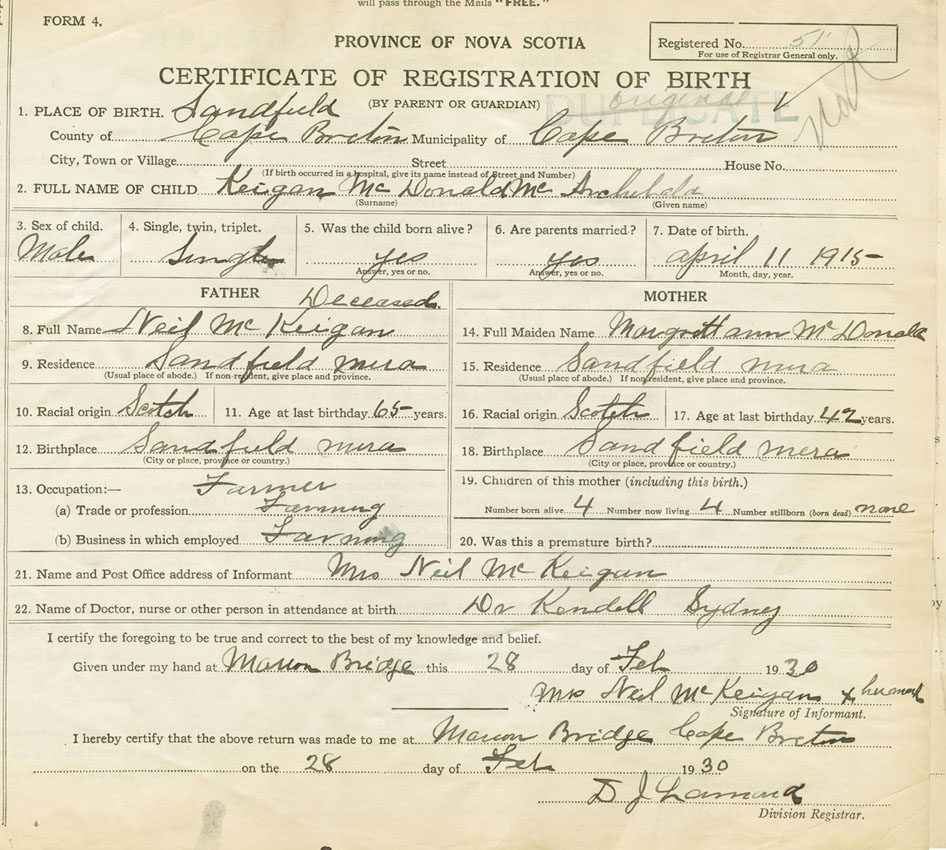 will pass through the Mails "FREE."
FORM 4.
PROVINCE OF NOVA SCOTIA
Registered No. 51
For use of Registrar General only.
CERTIFICATE OF REGISTRATION OF BIRTH
(BY PARENT OR GUARDIAN)
original
DUPLICATE
1. PLACE OF BIRTH. Sandfield
County of Cape Breton Municipality of Cape Breton
City, Town or Village Street House No.
(If birth occurred in a hospital, give its name instead of Street and Number)
2. FULL NAME OF CHILD Keigan Mc Donald Mc Archibald
(Surname) (Given name)
3. Sex of child. 4. Single, twin, triplet. 5. Was the child born alive? 6. Are parents married? 7. Date of birth.
Male Single yes yes April 11 1915
Answer, yes or no. Answer, yes or no. Month, day, year.
FATHER Deceased. MOTHER
8. Full Name Neil McKeigan 14. Full Maiden Name Margrett ann McDonald
9. Residence Sandfield mira 15. Residence Sandfield mira
(Usual place of abode.) If non-resident, give place and province. (Usual place of abode.) If non-resident, give place and province.
10. Racial origin Scotch 11. Age at last birthday 65 years. 16. Racial origin Scotch 17. Age at last birthday 42 years.
12. Birthplace Sandfield mira 18. Birthplace Sandfield mira
(City or place, province or country.) (City or place, province or country.)
13. Occupation:— Farmer 19. Children of this mother (including this birth.)
(a) Trade or profession Farming Number born alive 4 Number now living 4 Number stillborn (born dead) none
(b) Business in which employed Farming 20. Was this a premature birth?
21. Name and Post Office address of Informant Mrs Neil McKeigan
22. Name of Doctor, nurse or other person in attendance at birth Dr Kendell Sydney
I certify the foregoing to be true and correct to the best of my knowledge and belief.
Given under my hand at Marion Bridge this 28 day of Feb 1930
Mrs Neil McKeigan x her mark
Signature of Informant.
I hereby certify that the above return was made to me at Marion Bridge Cape Breton
on the 28 day of Feb 1930
D J
Division Registrar.